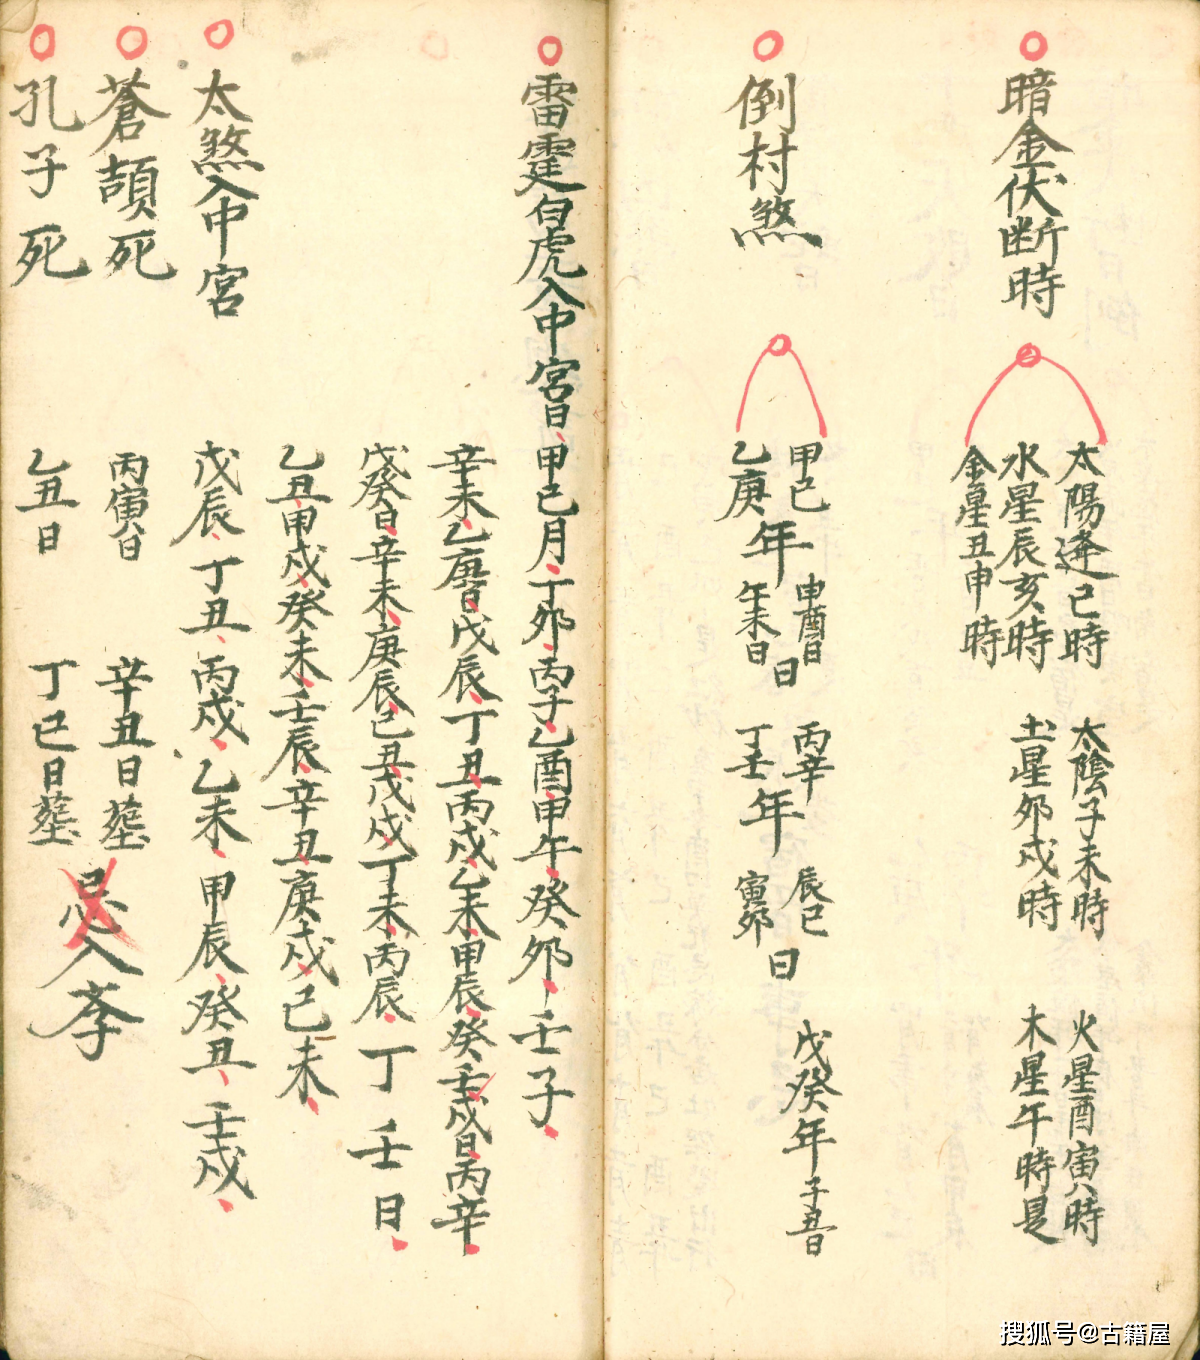 暗金伏断時
太陽逢巳時
水星辰亥時
金星丑申時
太陰子未時
土星夘戌時
火星酉寅時
木星午時是
倒村煞
甲己
乙庚
年
申酉日
午未日
日
丙辛
丁壬
年
辰巳
寅夘
日
戊癸年子丑日
雷霆白虎入中宮日甲己月丁夘丙子乙酉甲午癸夘壬子
辛未乙庚日戊辰丁丑丙戌乙未甲辰癸壬戌日丙辛
戊癸日辛未庚辰己丑戊戌丁未丙辰丁壬日
乙丑甲戌癸未壬辰辛丑庚戌己未
太煞入中宮
戊辰丁丑丙戌乙未甲辰癸丑壬戌
蒼頡死
丙寅日
辛丑日塟
孔子死
乙丑日
丁巳日塟
忌入孝
搜狐号@古籍屋